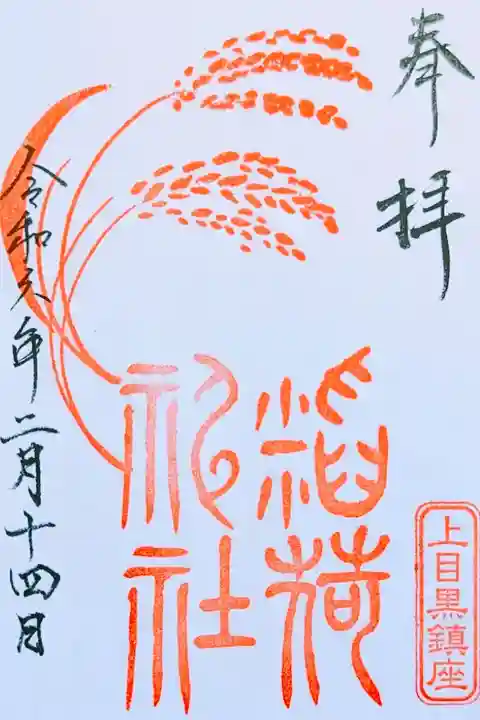 奉拝
稲荷
神社
上目黒鎮座
令和六年二月十四日